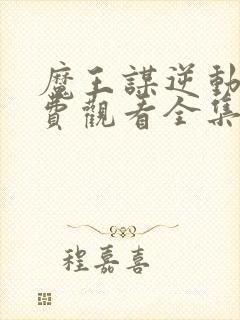 魔王謀逆動
費觀看全集
程嘉喜